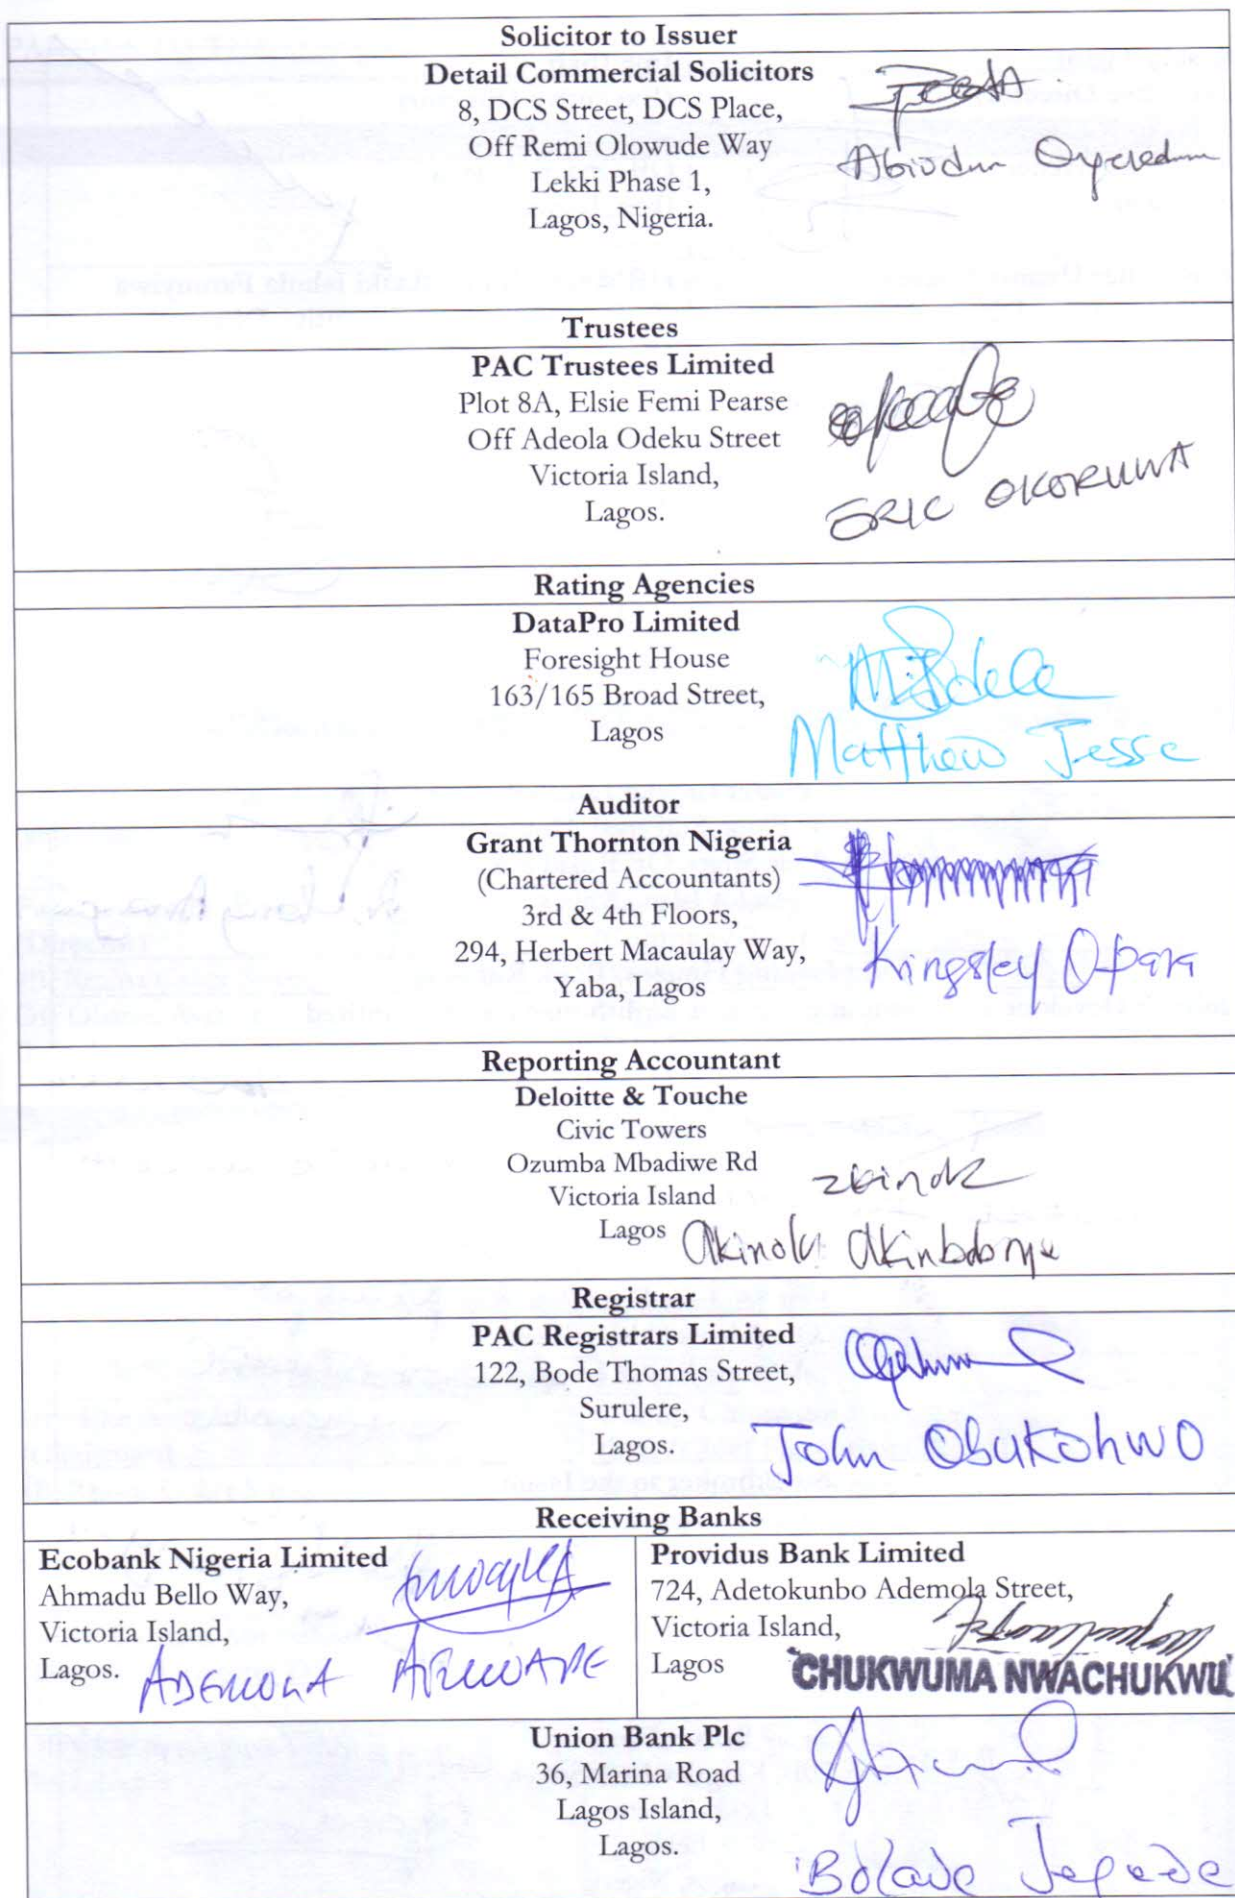 Solicitor to Issuer
Detail Commercial Solicitors
8, DCS Street, DCS Place,
Off Remi Olowude Way
Abiodun
Lekki Phase 1,
Lagos, Nigeria.
Trustees
PAC Trustees Limited
Plot 8A, Elsie Femi Pearse
Off Adeola Odeku Street
Victoria Island,
Lagos.
ERIC OKORUWA
Rating Agencies
DataPro Limited
Foresight House
163/165 Broad Street,
Lagos
Matthew Jesse
Auditor
Grant Thornton Nigeria
(Chartered Accountants)
3rd & 4th Floors,
294, Herbert Macaulay Way,
Yaba, Lagos
Kingsley Opara
Reporting Accountant
Deloitte & Touche
Civic Towers
Ozumba Mbadiwe Rd
Victoria Island
Lagos
Registrar
PAC Registrars Limited
122, Bode Thomas Street,
Surulere,
Lagos.
John Obukohwo
Receiving Banks
Ecobank Nigeria Limited
Ahmadu Bello Way,
Victoria Island,
Lagos.
Providus Bank Limited
724, Adetokunbo Ademola Street,
Victoria Island,
Lagos
CHUKWUMA NWACHUKWU
Union Bank Plc
36, Marina Road
Lagos Island,
Lagos.
Bolade Jegede